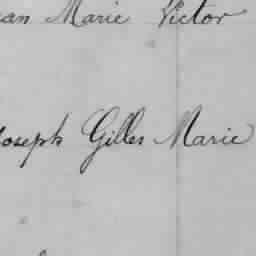 Marie Victor
Joseph Gilles Marie